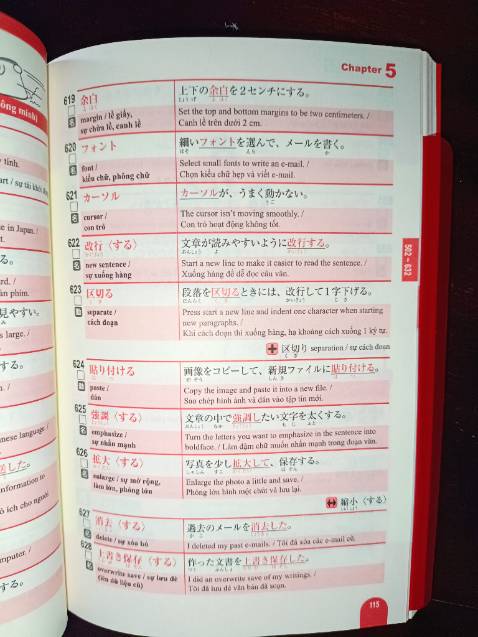 Chapter 5
619 余白
上下の余白を2センチにする。
margin / lề giấy,
sự chừa lề, canh lề
Set the top and bottom margins to be two centimeters. /
Canh lề trên dưới 2 cm.
620 フォント
細いフォントを選んで、メールを書く。
font /
kiểu chữ, phông chữ
Select small fonts to write an e-mail. /
Chọn kiểu chữ hẹp và viết e-mail.
621 カーソル
カーソルが、うまく動かない。
cursor /
con trỏ
The cursor isn't moving smoothly. /
Con trỏ hoạt động không tốt.
622 改行〈する〉
文章が読みやすいように改行する。
new sentence /
sự xuống hàng
Start a new line to make it easier to read the sentence. /
Xuống hàng để dễ đọc câu văn.
623 区切る
段落を区切るときには、改行して1字下げる。
separate /
cách đoạn
Press scart a new line and indent one character when starting
new paragraphs. /
Khi cách đoạn thì xuống hàng, hạ khoảng cách xuống 1 ký tự.
区切り separation / sự cách đoạn
624 貼り付ける
画像をコピーして、新規ファイルに貼り付ける。
paste /
dán
Copy the image and paste it into a new file. /
Sao chép hình ảnh và dán vào tập tin mới.
625 強調〈する〉
文章の中で強調したい文字を太くする。
emphasize /
sự nhấn mạnh
Turn the letters you want to emphasize in the sentence into
boldface. / Làm đậm chữ muốn nhấn mạnh trong đoạn văn.
626 拡大〈する〉
写真を少し拡大して、保存する。
enlarge / sự mở rộng,
làm lớn, phóng lớn
Enlarge the photo a little and save. /
Phóng lớn hình một chút và lưu lại.
縮小〈する〉
627 消去〈する〉
過去のメールを消去した。
delete / sự xóa bỏ
I deleted my past e-mails. / Tôi đã xóa các e-mail cũ.
628 上書き保存〈する〉
作った文書を上書き保存した。
overwrite save / sự lưu đè
(lên dữ liệu cũ)
I did an overwrite save of my writings. /
Tôi đã lưu đè văn bản đã soạn.
502 ~ 632
115